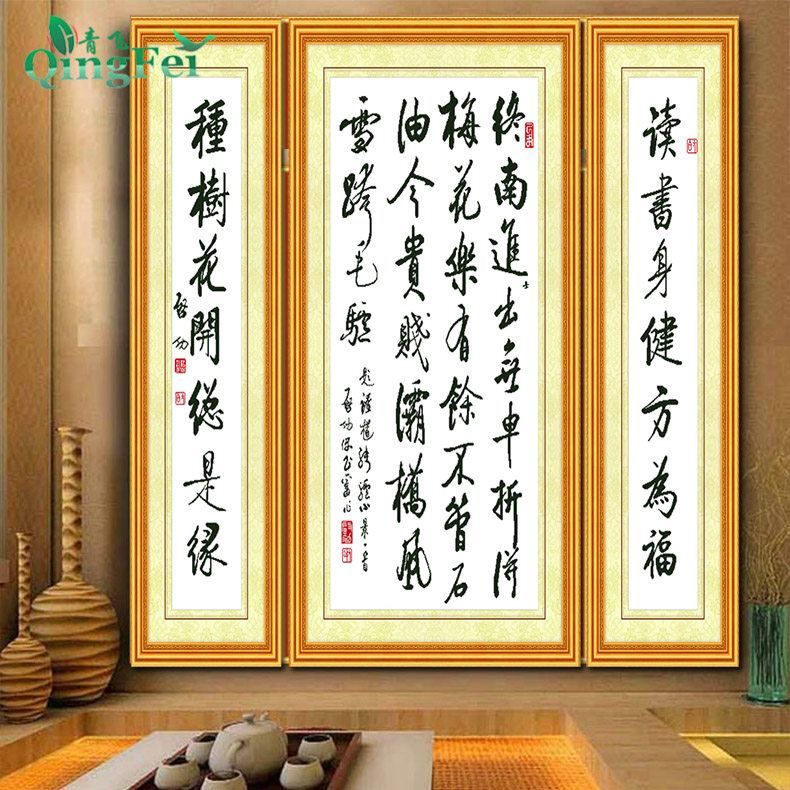 青飞
QingFei
读書身健方為福
終南進士出無車折得
梅花樂有餘不管石
油今貴賤灞橋風
雪跨毛驢
種樹花開總是緣
啓功